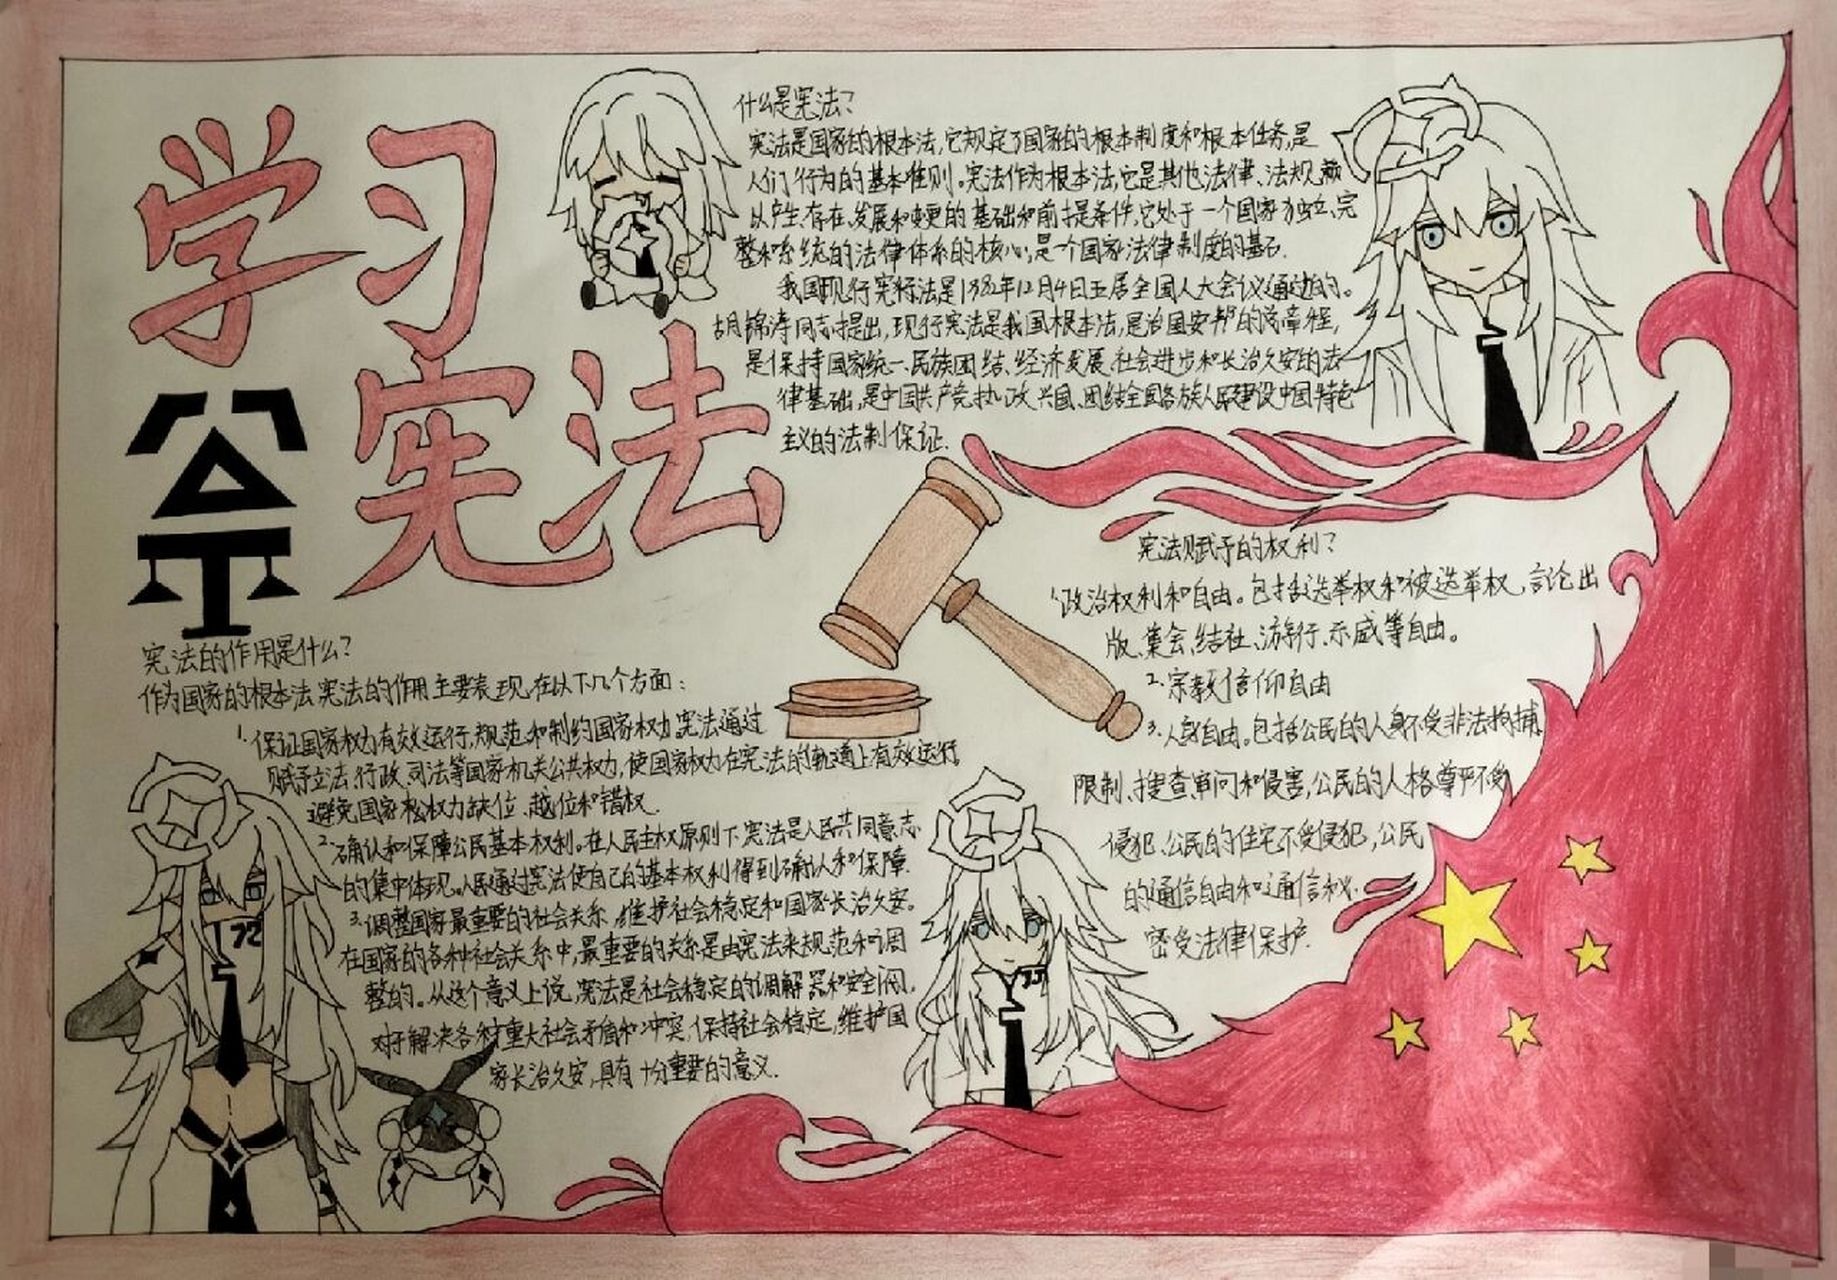 学习
宪法
什么是宪法?
宪法是国家的根本法,它规定了国家的根本制度和根本任务,是
人们行为的基本准则。宪法作为根本法,它是其他法律、法规赖
以产生、存在、发展和变更的基础和前提条件,它处于一个国家独立、完
整和系统的法律体系的核心,是一个国家法律制度的基石.
我国现行宪行法是1982年12月4日五届全国人大会议通过的。
胡锦涛同志提出,现行宪法是我国根本法,是治国安邦的章程,
是保持国家统一、民族团结、经济发展、社会进步和长治久安的法
律基础,是中国共产党执政兴国、团结全国各族人民建设中国特色
主义的法制保证.
宪法的作用是什么?
作为国家的根本法,宪法的作用主要表现在以下几个方面:
1.保证国家权力有效运行,规范和制约国家权力,宪法通过
赋予立法、行政、司法等国家机关公共权力,使国家权力在宪法的轨道上有效运行,
避免国家权力缺位、越位和错权.
2.确认和保障公民基本权利。在人民主权原则下,宪法是人民共同意志
的集中体现。人民通过宪法使自己的基本权利得到确认和保障.
3.调整国家最重要的社会关系,维护社会稳定和国家长治久安。
在国家的各种社会关系中,最重要的关系是由宪法来规范和调
整的。从这个意义上说,宪法是社会稳定的调解器和安全阀,
对于解决各种重大社会矛盾和冲突,保持社会稳定,维护国
家长治久安,具有十分重要的意义.
宪法赋予的权利?
1.政治权利和自由。包括选举权和被选举权,言论、出
版、集会、结社、游行、示威等自由。
2.宗教信仰自由
3.人身自由。包括公民的人身不受非法拘捕、
限制、搜查、审问和侵害,公民的人格尊严不受
侵犯、公民的住宅不受侵犯,公民
的通信自由和通信秘
密受法律保护.
72